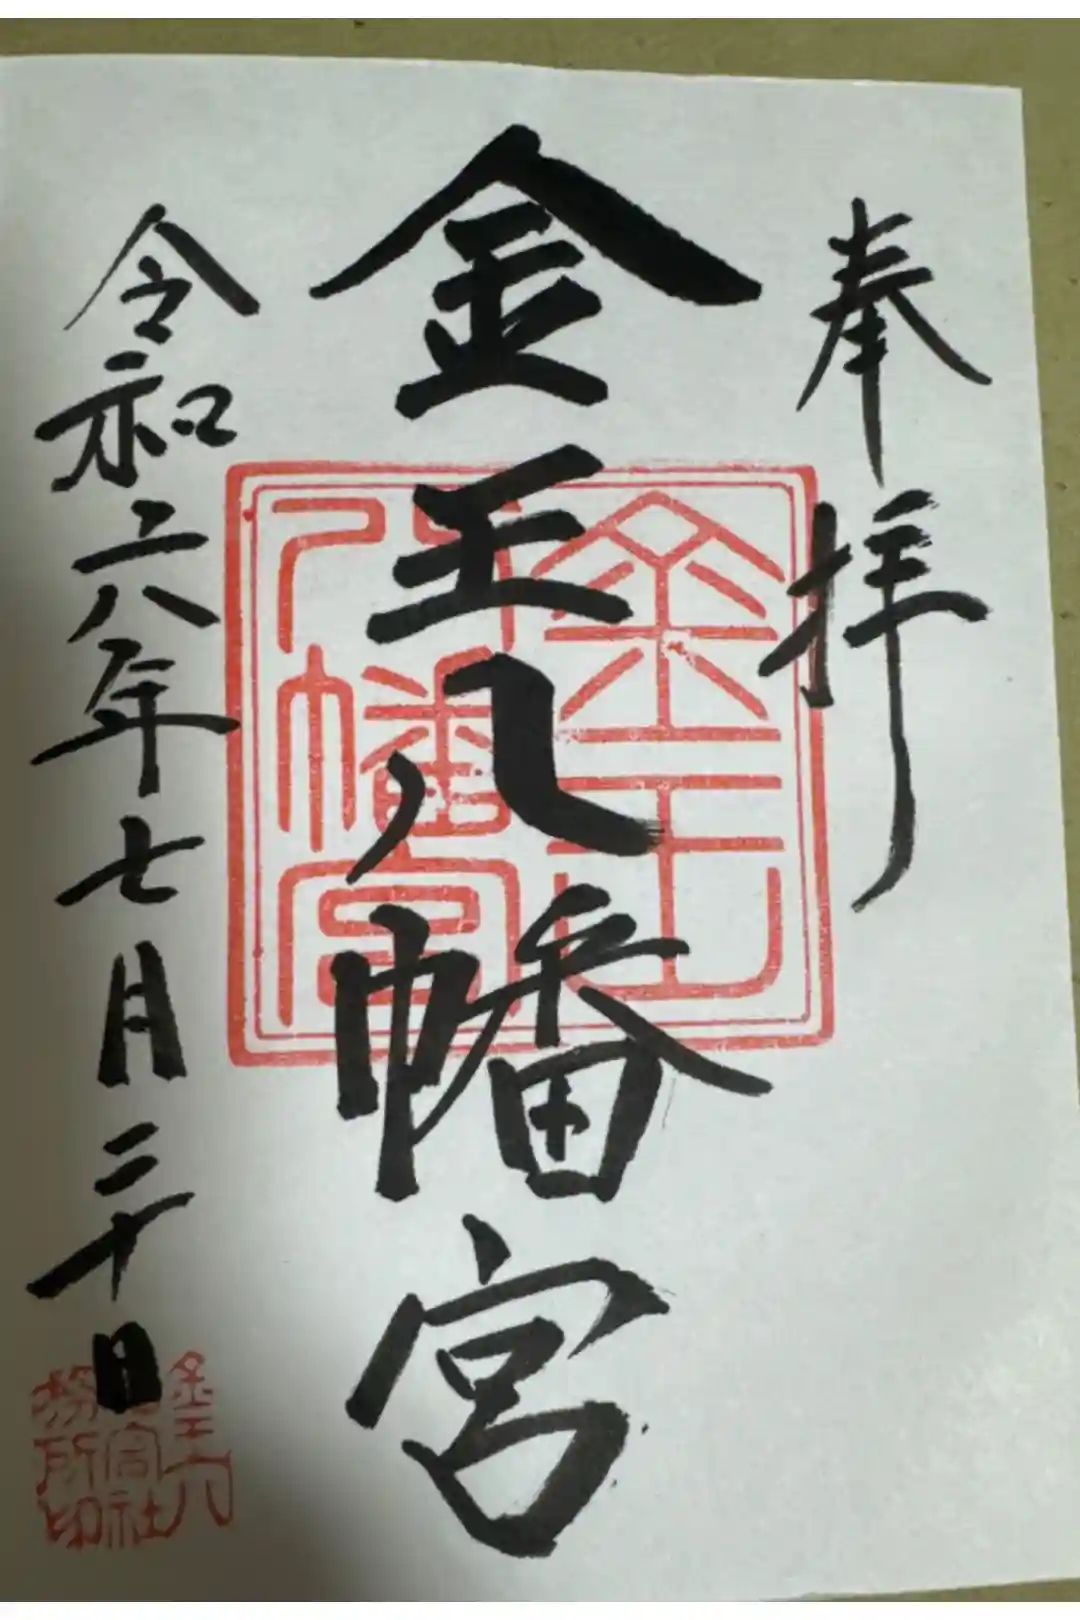 奉拝
金王八幡宮
令和六年七月三十日
金王
八幡宮
金王八
幡宮社
務所印